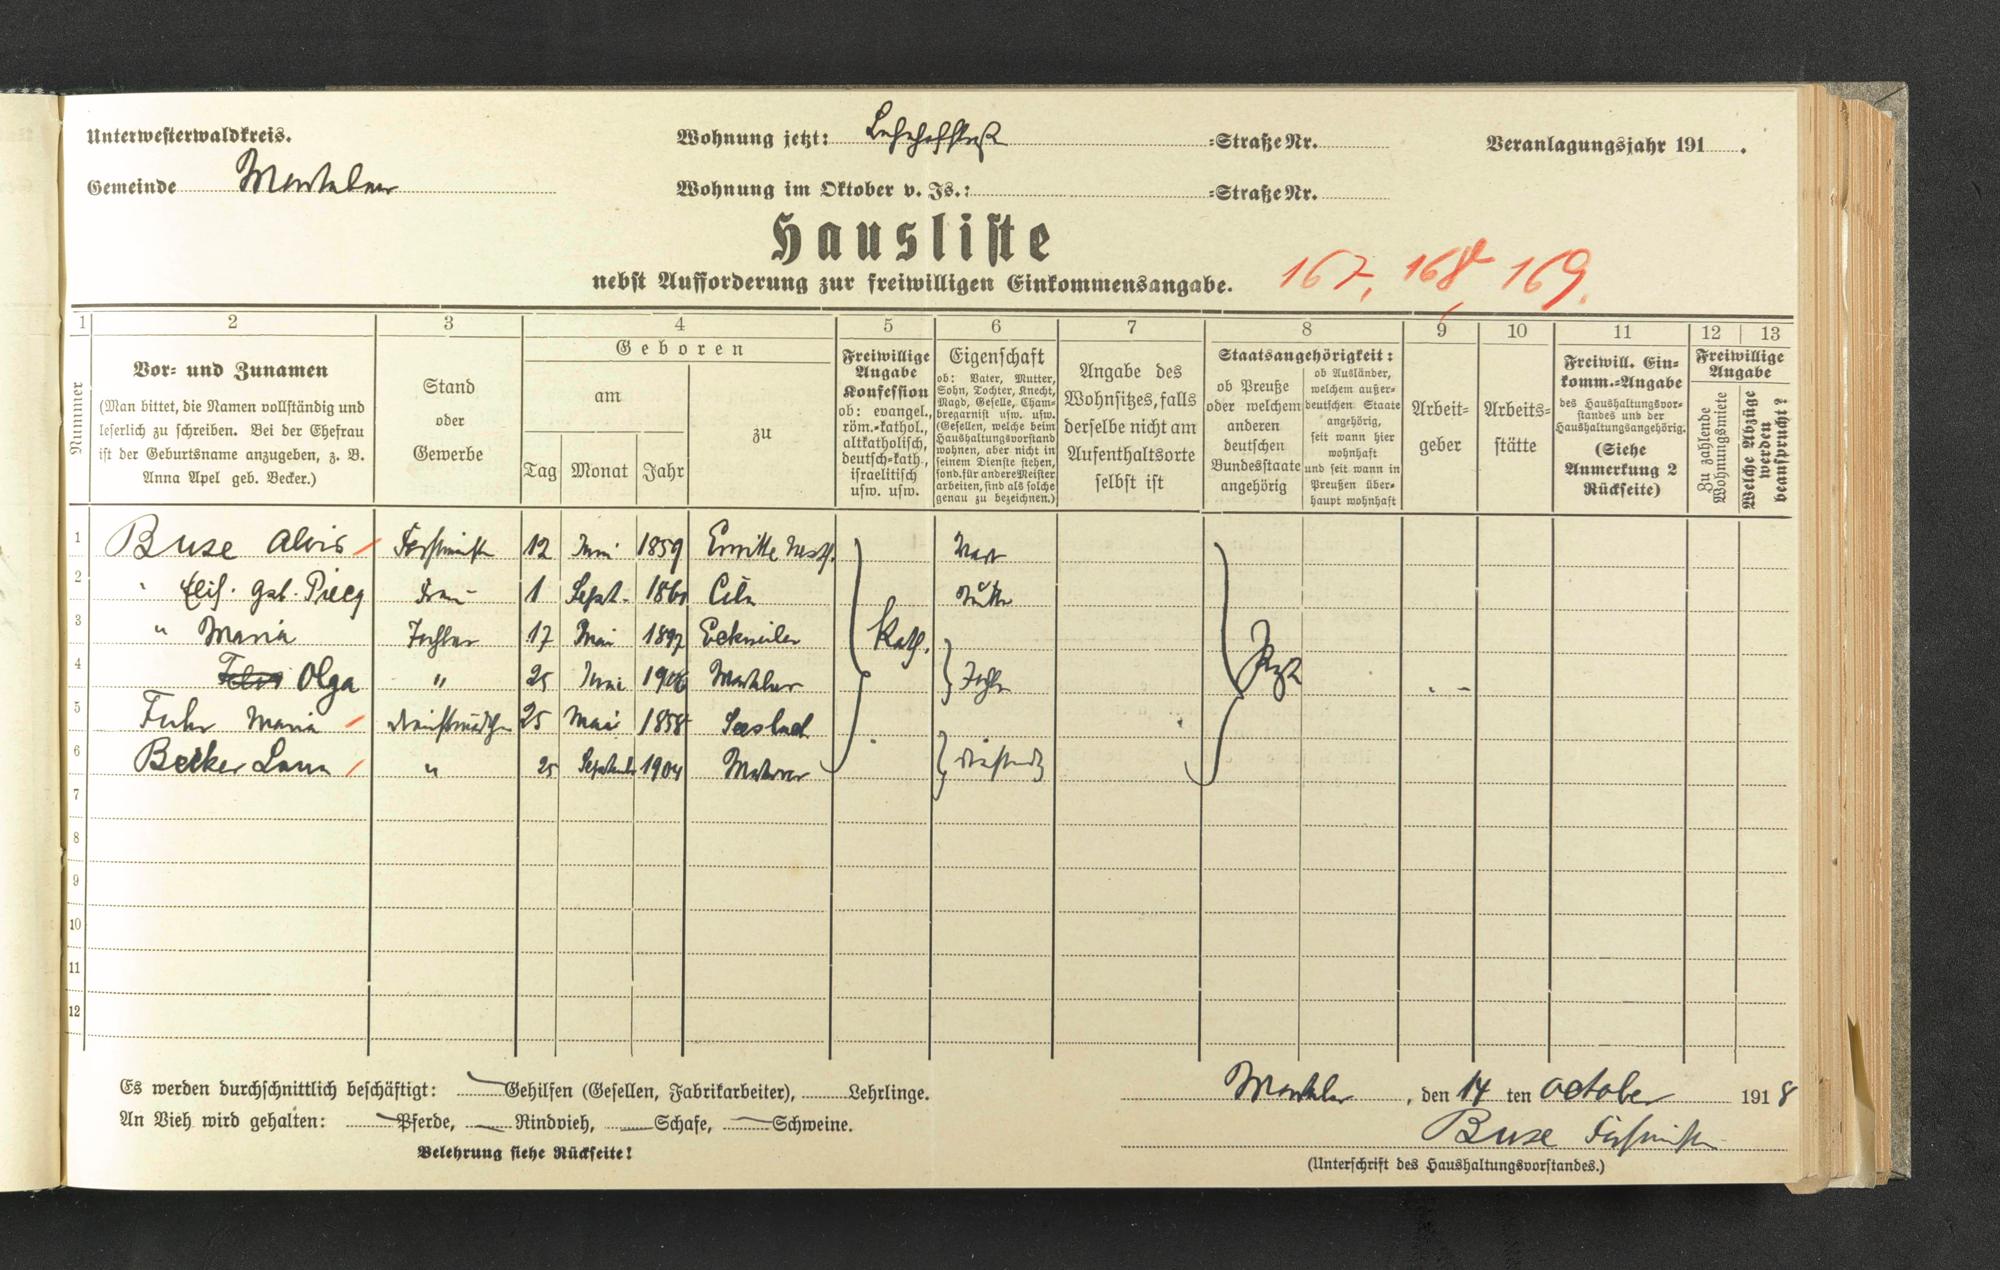 Unterwesterwaldkreis.
Wohnung jetzt: -Straße Nr.
Veranlagungsjahr 191 .
Gemeinde Montabaur
Wohnung im Oktober v. Js.: -Straße Nr.
Hausliste
nebst Aufforderung zur freiwilligen Einkommensangabe.
167, 168, 169.
1 2 3 4 5 6 7 8 9 10 11 12 13
Nummer
Vor- und Zunamen
(Man bittet, die Namen vollständig und
leserlich zu schreiben. Bei der Ehefrau
ist der Geburtsname anzugeben, z. B.
Anna Apel geb. Becker.)
Stand
oder
Gewerbe
Geboren
am
Tag Monat Jahr
zu
Freiwillige
Angabe
Konfession
ob: evangel.,
röm.-kathol.,
altkatholisch,
deutsch-kath.,
israelitisch
usw. usw.
Eigenschaft
ob: Vater, Mutter,
Sohn, Tochter, Knecht,
Magd, Geselle, Cham-
bregarnist usw. usw.
(Gesellen, welche beim
Haushaltungsvorstand
wohnen, aber nicht in
seinem Dienste stehen,
sond. für andere Meister
arbeiten, sind als solche
genau zu bezeichnen.)
Angabe des
Wohnsitzes, falls
derselbe nicht am
Aufenthaltsorte
selbst ist
Staatsangehörigkeit:
ob Preuße
oder welchem
anderen
deutschen
Bundesstaate
angehörig
ob Ausländer,
welchem außer-
deutschen Staate
angehörig,
seit wann hier
wohnhaft
und seit wann in
Preußen über-
haupt wohnhaft
Arbeit-
geber
Arbeits-
stätte
Freiwill. Ein-
komm.-Angabe
des Haushaltungsvor-
standes und der
Haushaltungsangehörig.
(Siehe
Anmerkung 2
Rückseite)
Freiwillige
Angabe
Zu zahlende
Wohnungsmiete
Welche Abzüge
werden
beansprucht?
1 Buse Alois 12 Juni 1859 Erwitte Westf. Vater
2 " Elis. geb. Frau 1 Sept. Cöln Mutter
3 " Maria Tochter 17 Mai 1897 Eckweiler
Kath.
4 Olga " 25 Juni Montabaur Tochter
5 Maria 25 Mai 1858
6 Becker " 25 September 1904
7
8
9
10
11
12
Es werden durchschnittlich beschäftigt: — Gehilfen (Gesellen, Fabrikarbeiter), Lehrlinge.
An Vieh wird gehalten: — Pferde, — Rindvieh, — Schafe, — Schweine.
Belehrung siehe Rückseite!
Montabaur, den 14 ten October 1918
Buse Forstmeister
(Unterschrift des Haushaltungsvorstandes.)